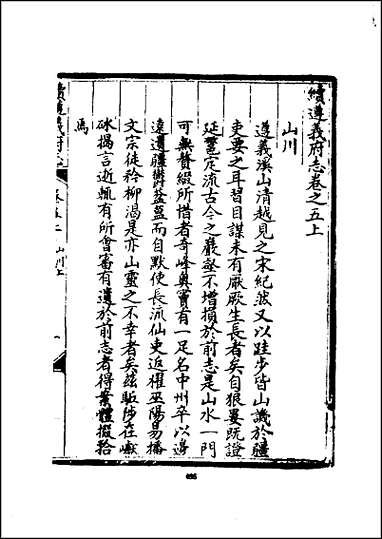 續遵義府志卷之五上
山川
遵義溪山清越見之宋紀然又以跬步皆山譏於疆
吏要之耳習目謀未有厭厥生長者矣自狼㠜既證
延䀆定流古今之巖壑不增損於前志是山水一門
可無贅綴所惜者奇峰奧竇有一足名中州卒以邊
遠遺疆鬱蓊㿽而自默使長流仙吏返櫂巫陽易播
文宗徒矜柳渴是亦山靈之不幸者矣茲敺陟在巘
砅揭言逝輒有所會審有遺於前志者得案體掇拾
焉
續遵義府志
卷五上 山川上
一
495